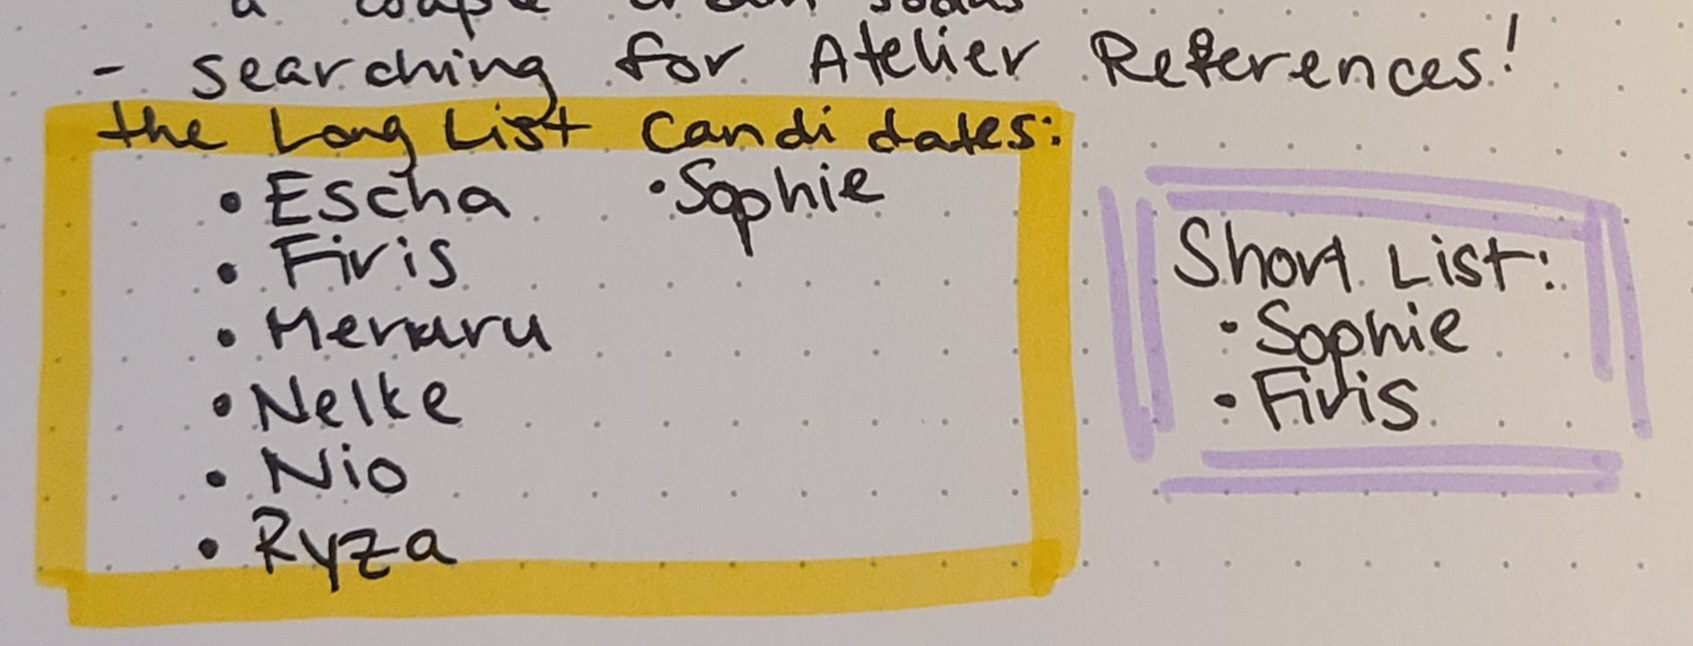 - searching for Atelier References!
the Long List Candidates:
• Escha • Sophie
• Firis
• Meruru
• Nelke
• Nio
• Ryza
Short List:
• Sophie
• Firis